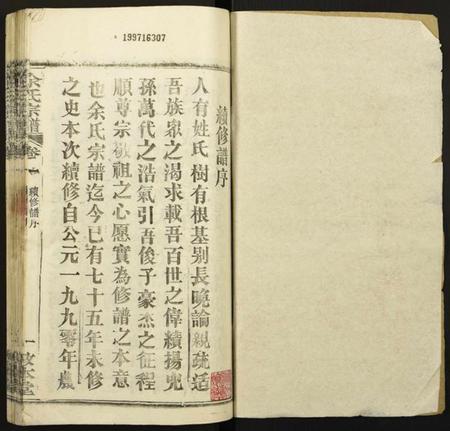 199716307
續修譜序
人有姓氏樹有根基别長曉論親疏适
吾族衆之渴求載吾百世之偉績揚兜
孫萬代之浩氣引吾俊子豪杰之征程
順尊宗敬祖之心愿實為修譜之本意
也余氏宗譜迄今已有七十五年未修
之史本次續修自公元一九九零年農
余氏宗譜
卷一
續修譜序
一